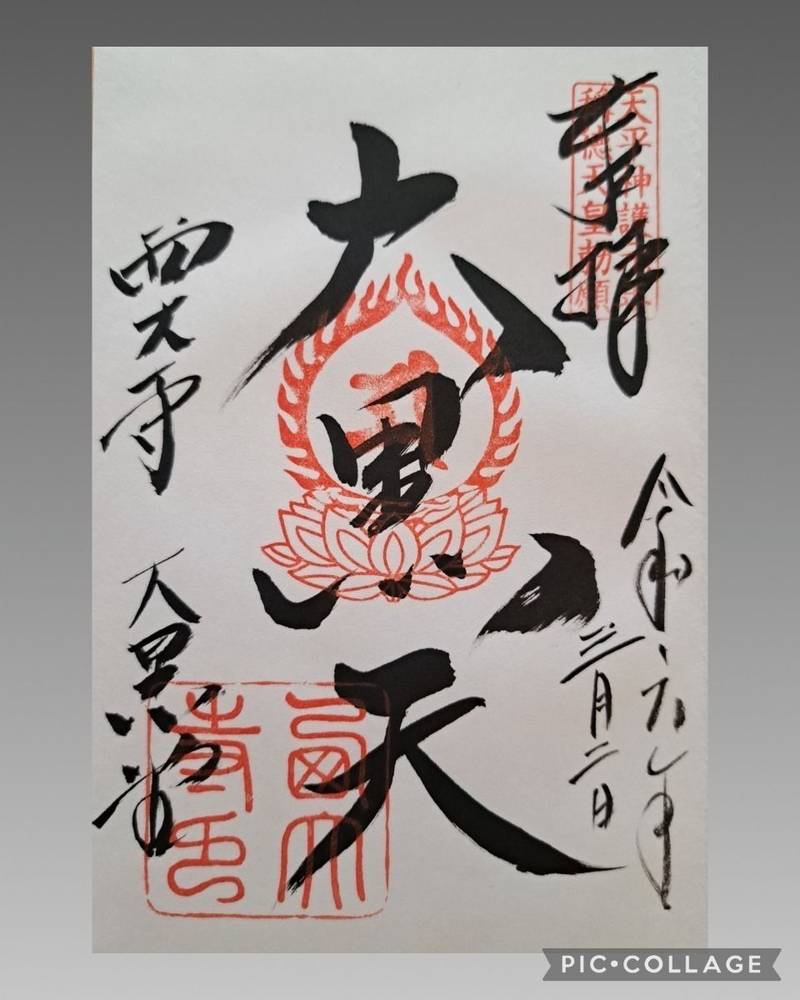 奉拝
天平神護元年
称徳天皇勅願
令和六年
三月二日
大黒天
西大寺
大黒天堂
西大寺印
PIC•COLLAGE